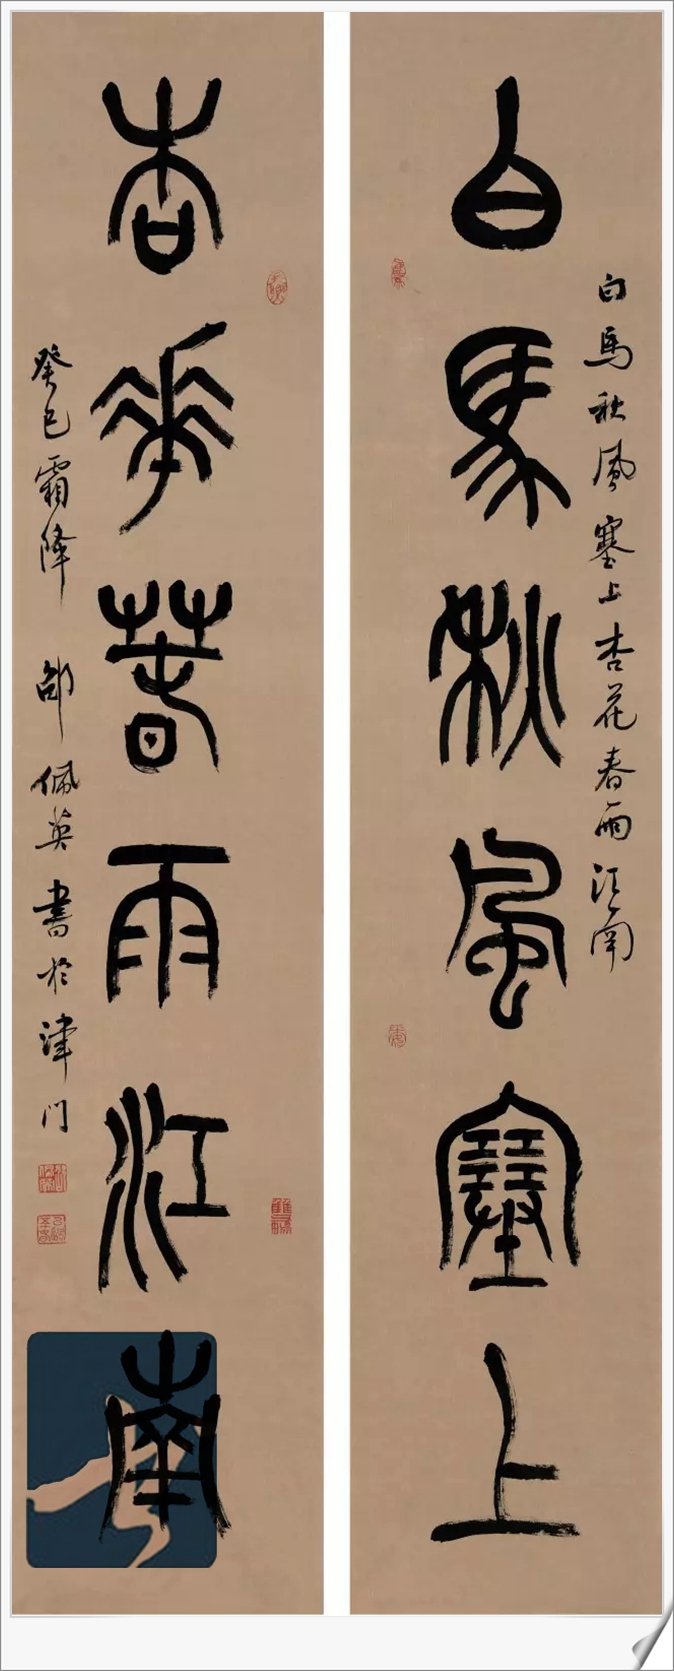 白馬秋風塞上
白馬秋風塞上杏花春雨江南
杏花春雨江南
癸巳霜降 邵佩英書於津门